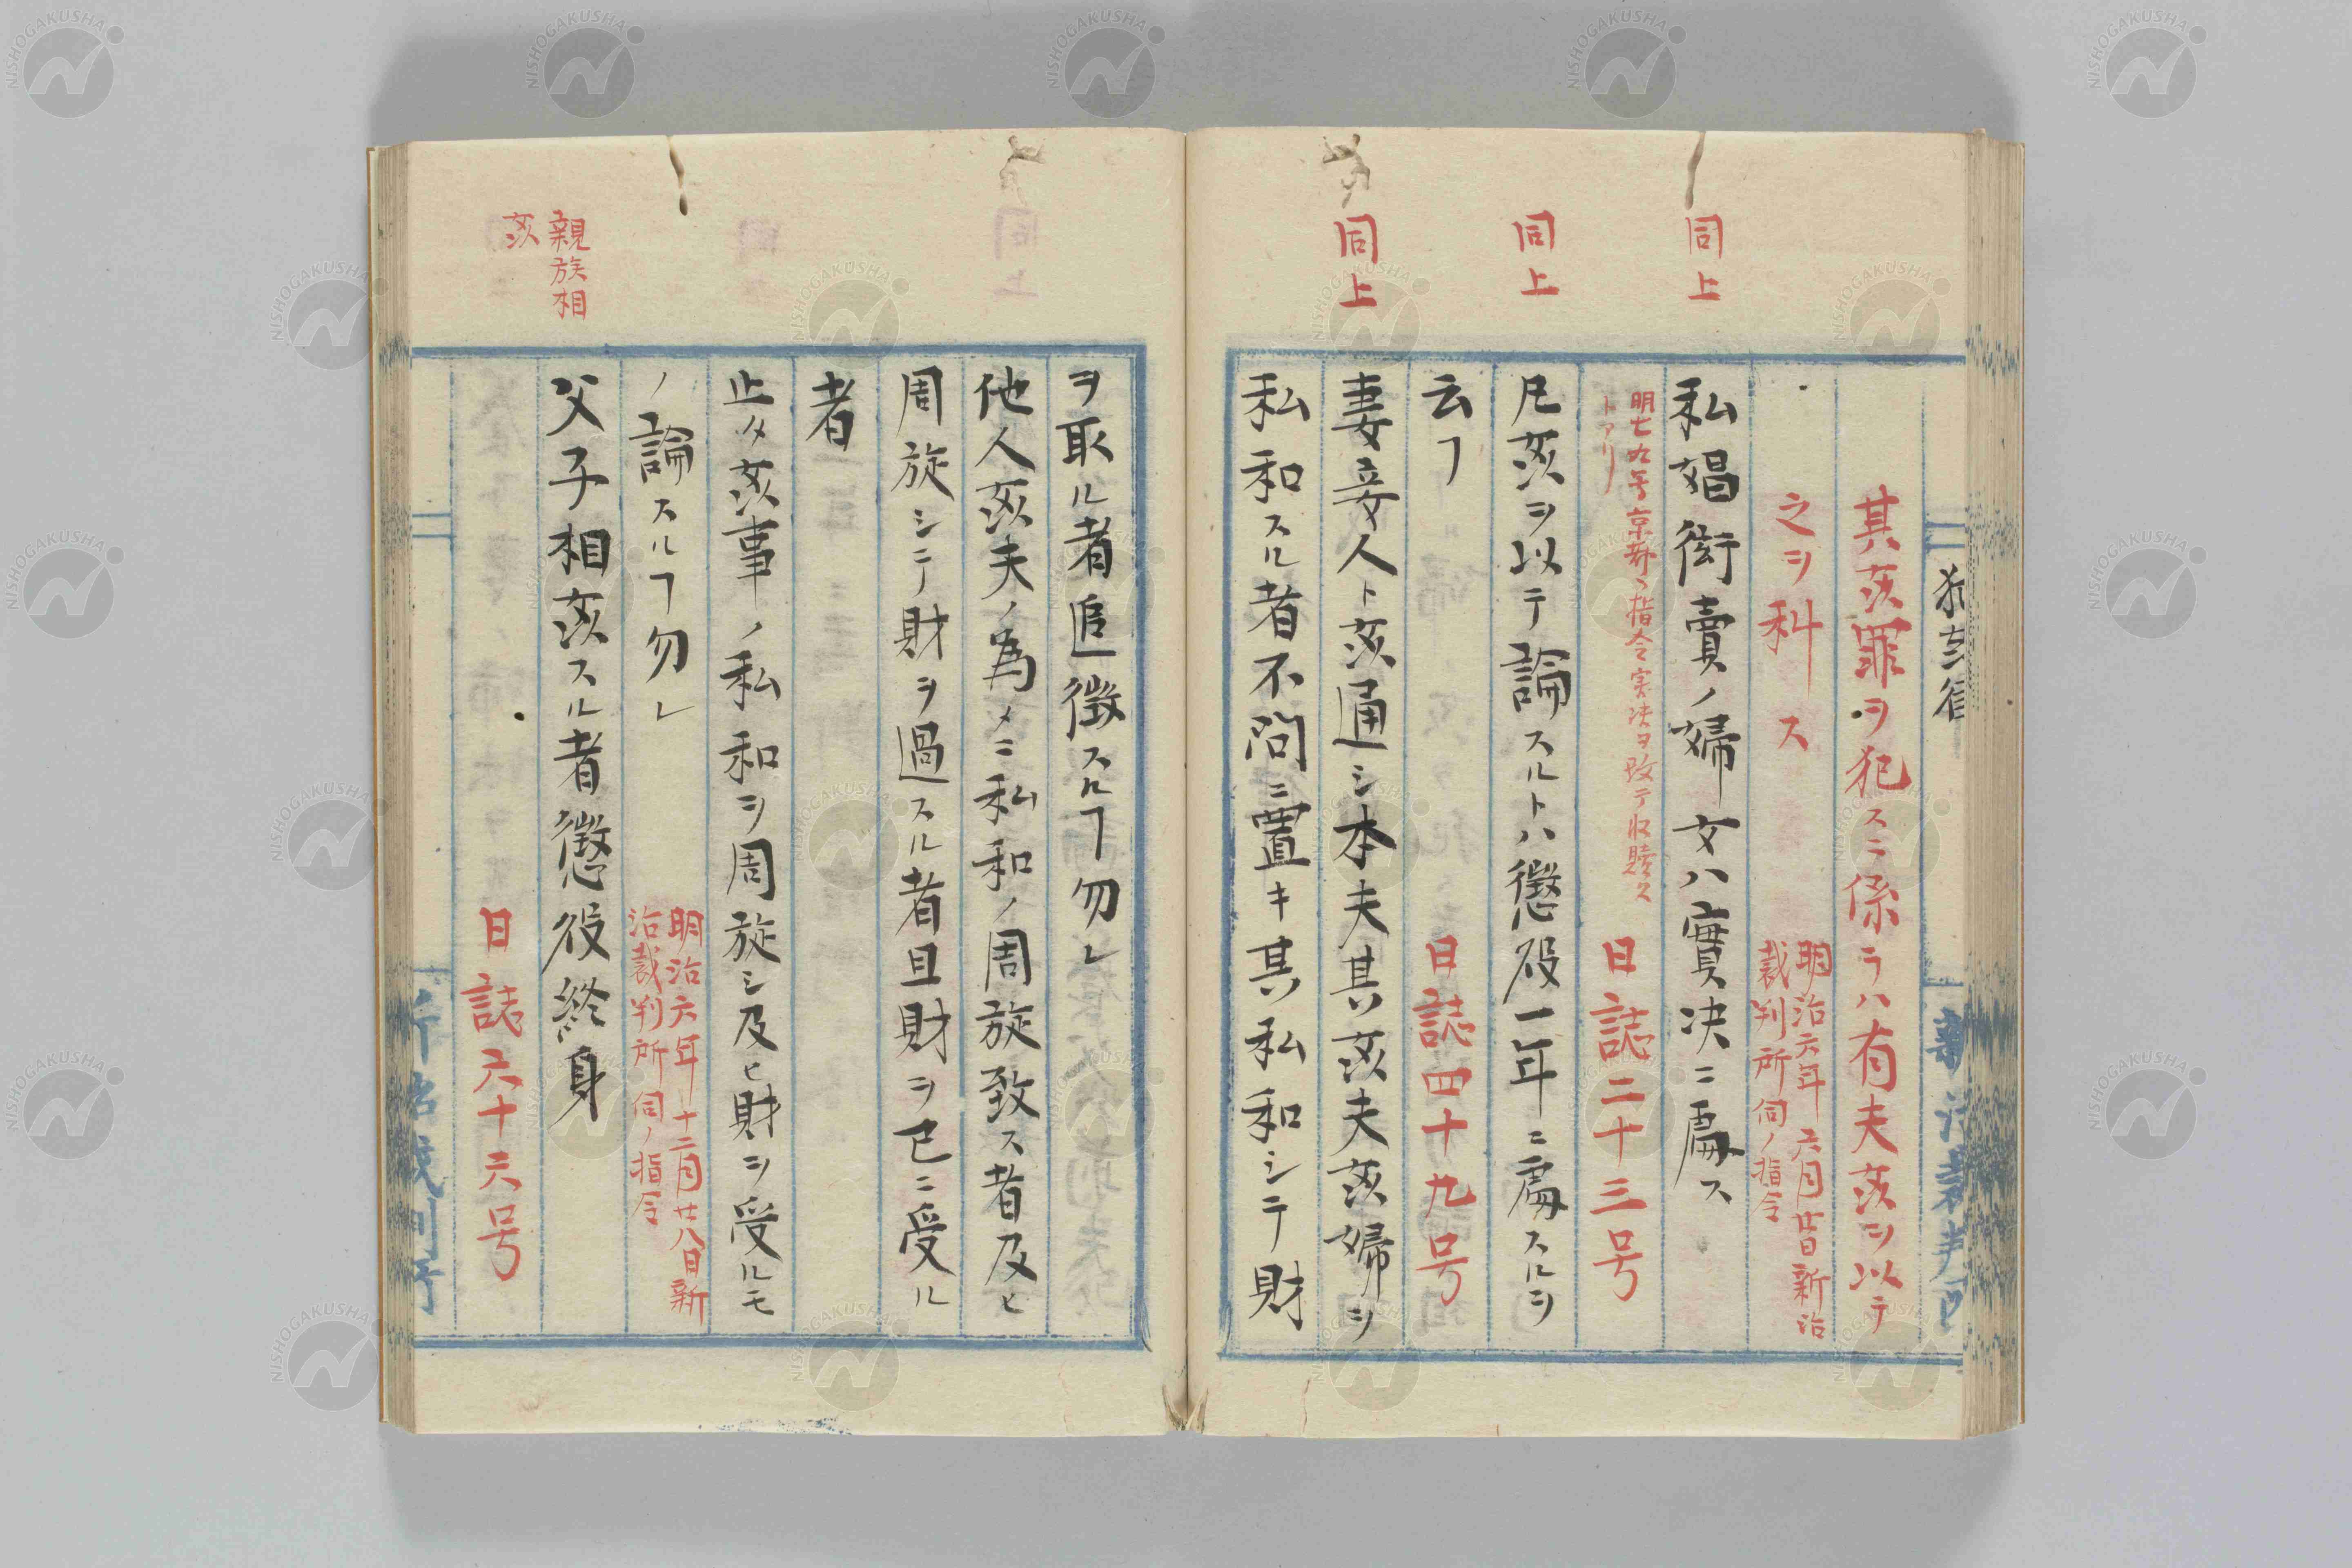 其姦罪ヲ犯スニ係ラハ有夫姦ヲ以テ
之ヲ科ス
明治六年六月廿日新治
裁判所伺ノ指令
同上
私娼衒賣ノ婦女ハ實決ニ處ス
明七九号京府ヘ指令実决ヲ改テ収贖ス
トアリ
日誌二十三号
同上
凡姦ヲ以テ論スルトハ懲役一年ニ處スルヲ
云フ
日誌四十九号
同上
妻妾人ト姦通シ本夫其姦夫姦婦ヲ
私和スル者不問ニ置キ其私和シテ財
ヲ取ル者追徴スルヿ勿レ
他人姦夫ノ為メニ私和ノ周旋致ス者及ヒ
周旋シテ財ヲ過スル者且財ヲ已ニ受ル
者
止タ姦事ノ私和ヲ周旋シ及ヒ財ヲ受ルモ
ノ論スルヿ勿レ
明治六年十二月廿八日新
治裁判所伺ノ指令
親族相
姦
父子相姦スル者懲役終身
日誌六十六号
NISHOGAKUSHA